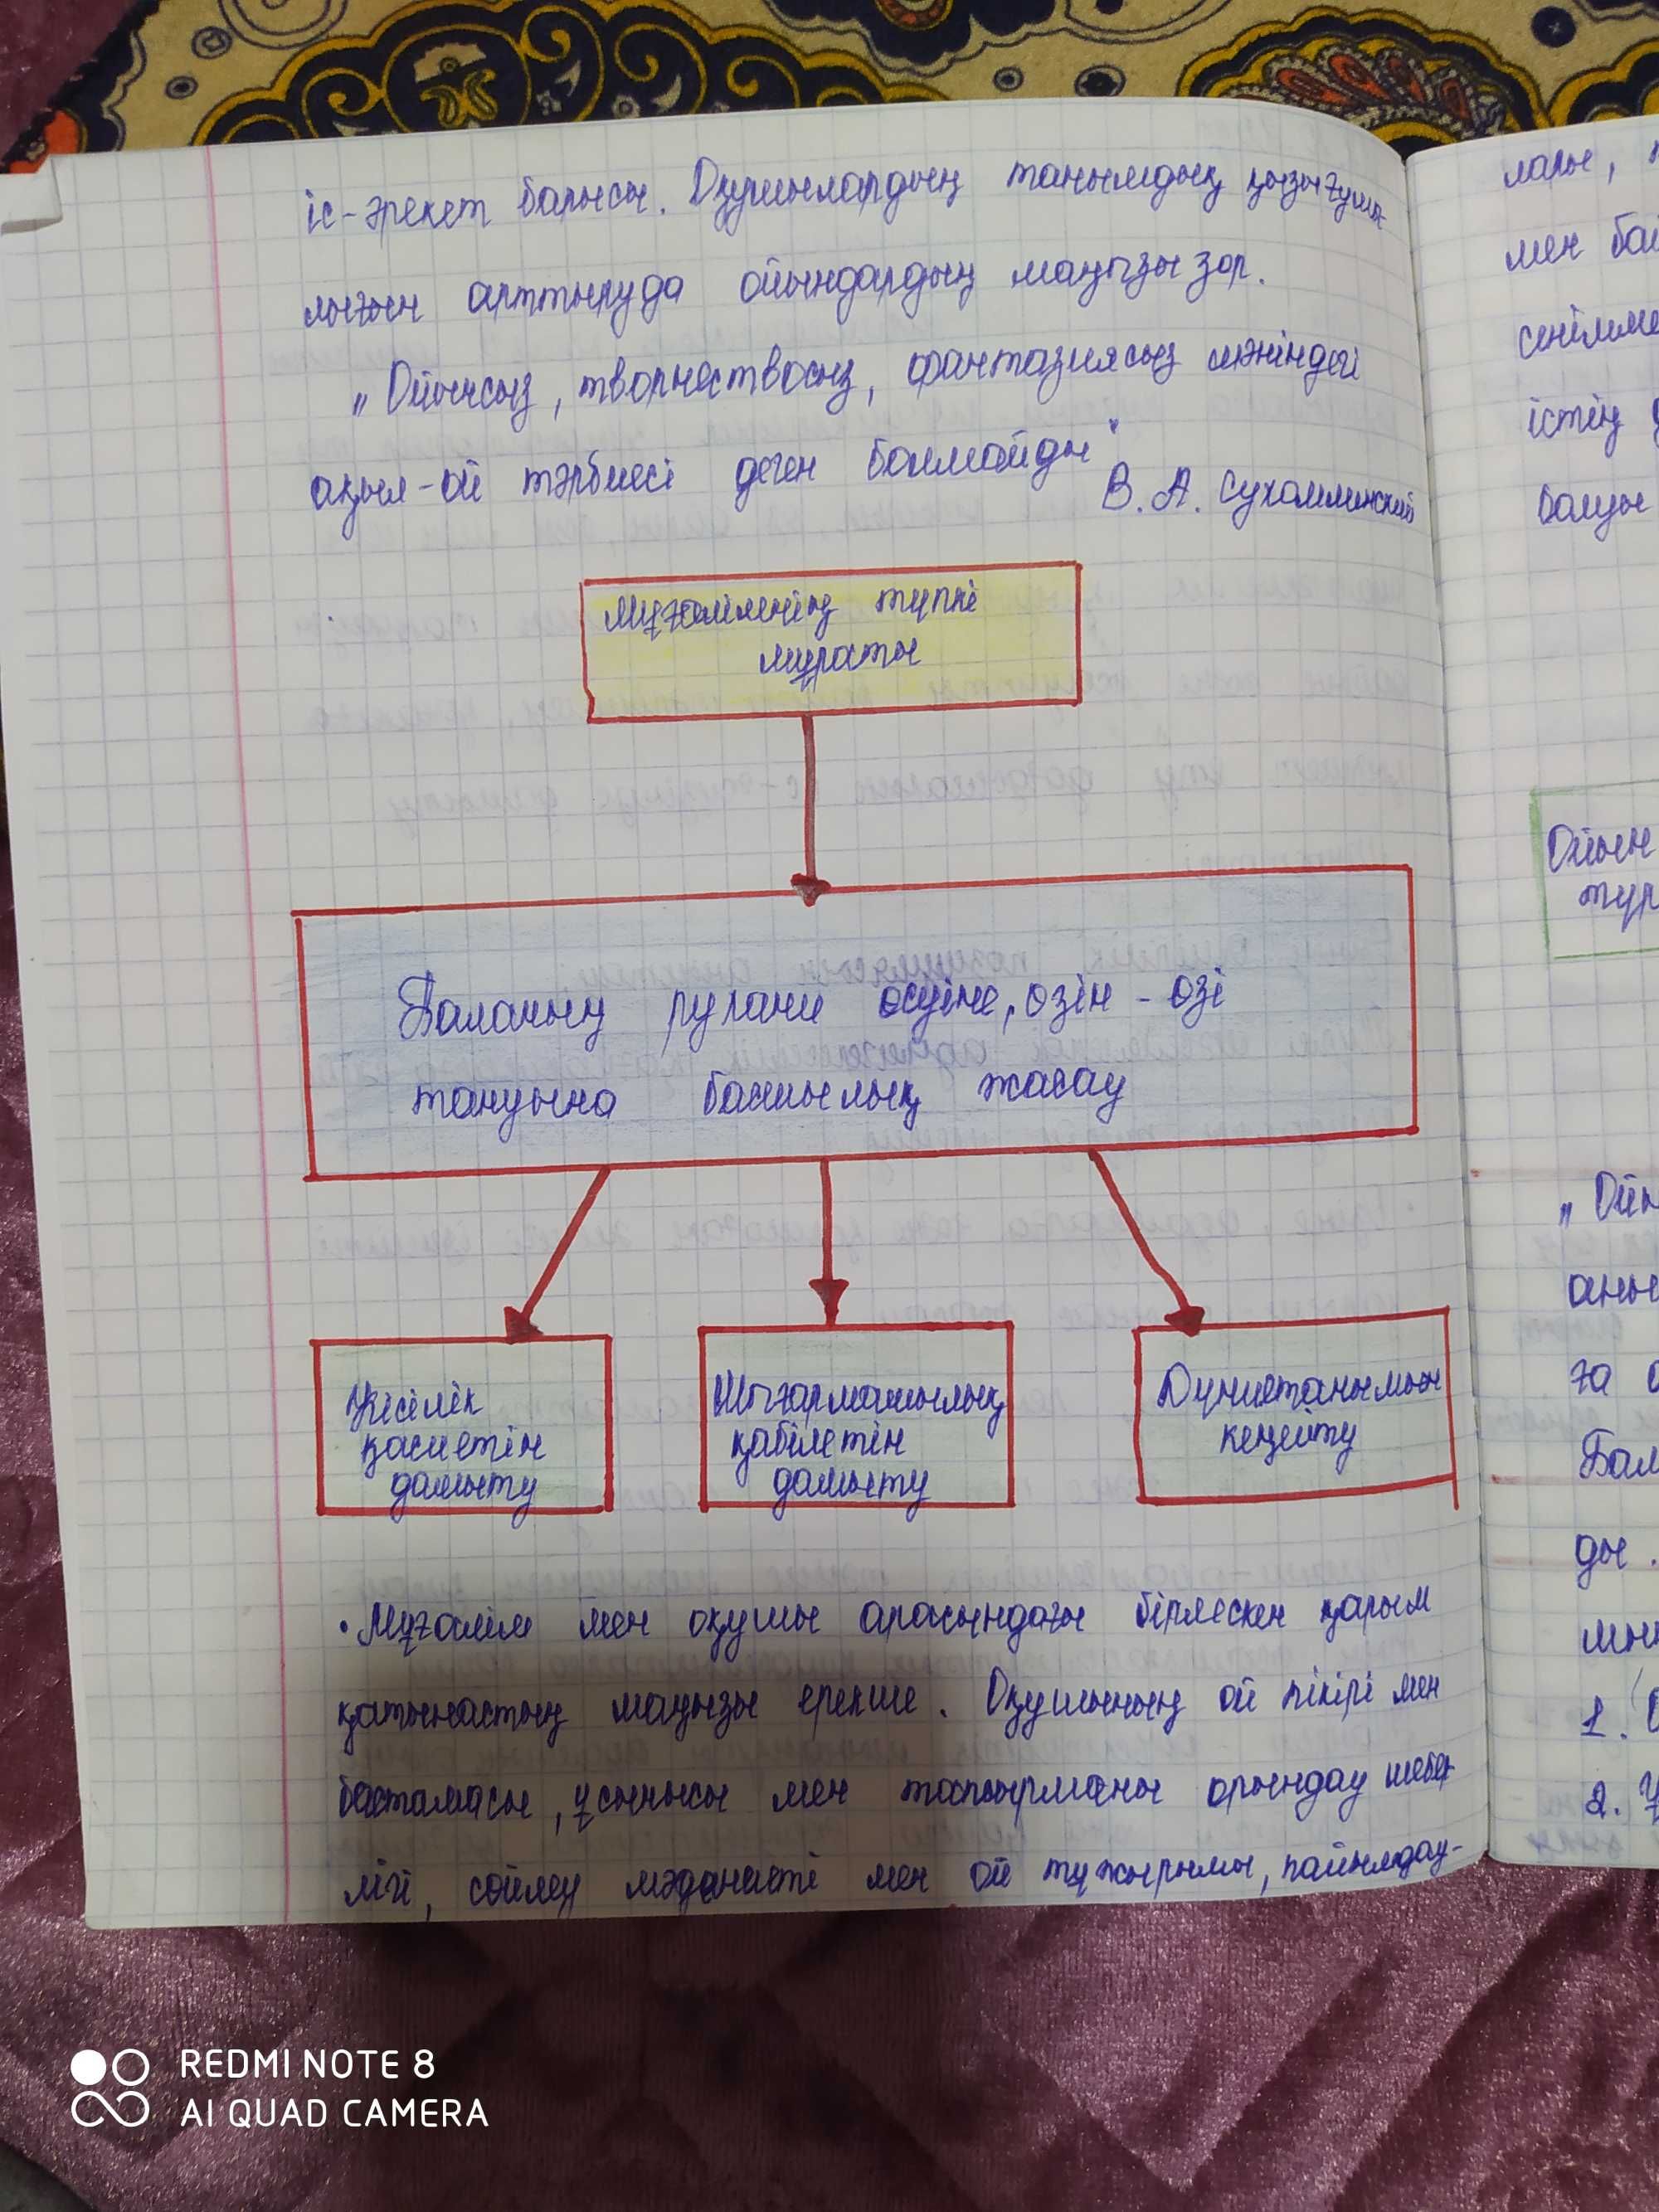 іс-әрекет барысы. Оқушылардың танымдық қызығушы-
лығын арттыруда ойындардың маңызы зор.
„Ойынсыз, творчествосыз, фантазиясыз мәніндегі
ақыл-ой тәрбиесі деген болмайды"
В. А. Сухомлинский
Мұғалімнің түпкі
мұраты
Баланың рухани өсуіне, өзін-өзі
тануына басшылық жасау
Кісілік
қасиетін
дамыту
Шығармашылық
қабілетін
дамыту
Дүниетанымын
кеңейту
• Мұғалім мен оқушы арасындағы бірлескен қарым
қатынастың маңызы ерекше. Оқушының ой пікірі мен
бастамасы, ұсынысы мен тапсырманы орындау шебер
лігі, сөйлеу мәдениеті мен ой тұжырымы, пайымдау-
лары,
мен
істің
болуы
Ойын
түр
„Ойн
ға
Бал
ды.
1.
2.
REDMI NOTE 8
AI QUAD CAMERA